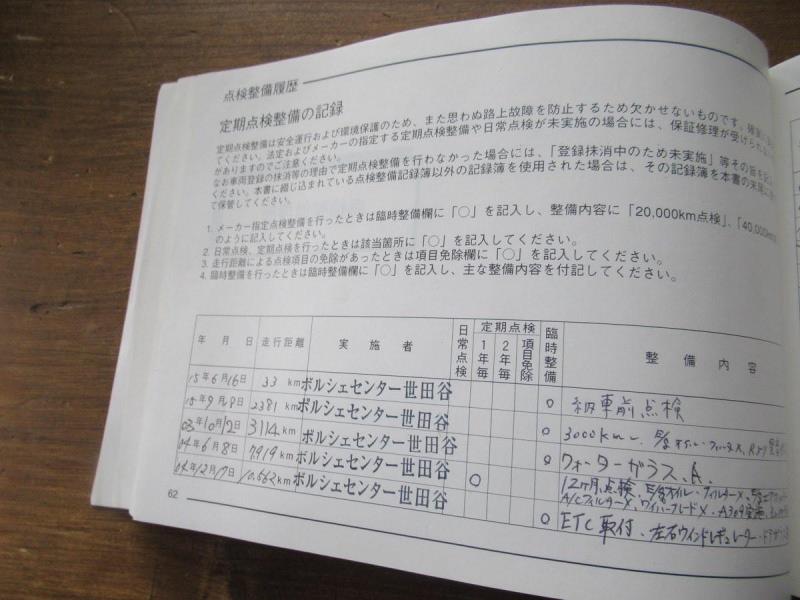 点検整備履歴
定期点検整備の記録
定期点検整備は安全運行および環境保護のため、また思わぬ路上故障を防止するため欠かせないものです。確実に
てください。法定およびメーカーの指定する定期点検整備や日常点検が未実施の場合には、保証修理が受けられ
がありますのでご注意ください。
なお車両登録の抹消等の理由で定期点検整備を行わなかった場合には、「登録抹消中のため未実施」等その旨を記
ください。本書に綴じ込まれている点検整備記録簿以外の記録簿を使用された場合は、その記録簿を本書の末尾に
て保管してください。
1. メーカー指定点検整備を行ったときは臨時整備欄に「○」を記入し、整備内容に「20,000km点検」、「40,000km
のように記入してください。
2. 日常点検、定期点検を行ったときは該当箇所に「○」を記入してください。
3. 走行距離による点検項目の免除があったときは項目免除欄に「○」を記入してください。
4. 臨時整備を行ったときは臨時整備欄に「○」を記入し、主な整備内容を付記してください。
年 月 日 走行距離 実施者 日常点検 定期点検 1年毎 2年毎 項目免除 臨時整備 整備内容
15年6月16日 33 km ポルシェセンター世田谷 ○ 納車前点検
15年9月9日 2381 km ポルシェセンター世田谷 ○ 3000km
03年10月12日 3114 km ポルシェセンター世田谷 ○ ウォーターガラス
04年6月8日 7919 km ポルシェセンター世田谷 ○ 12ヶ月点検、
A/Cフィルター×、ワイパーブレード×
04年12月17日 10,662 km ポルシェセンター世田谷 ○ ETC取付、左右ウインドレギュレーター
62